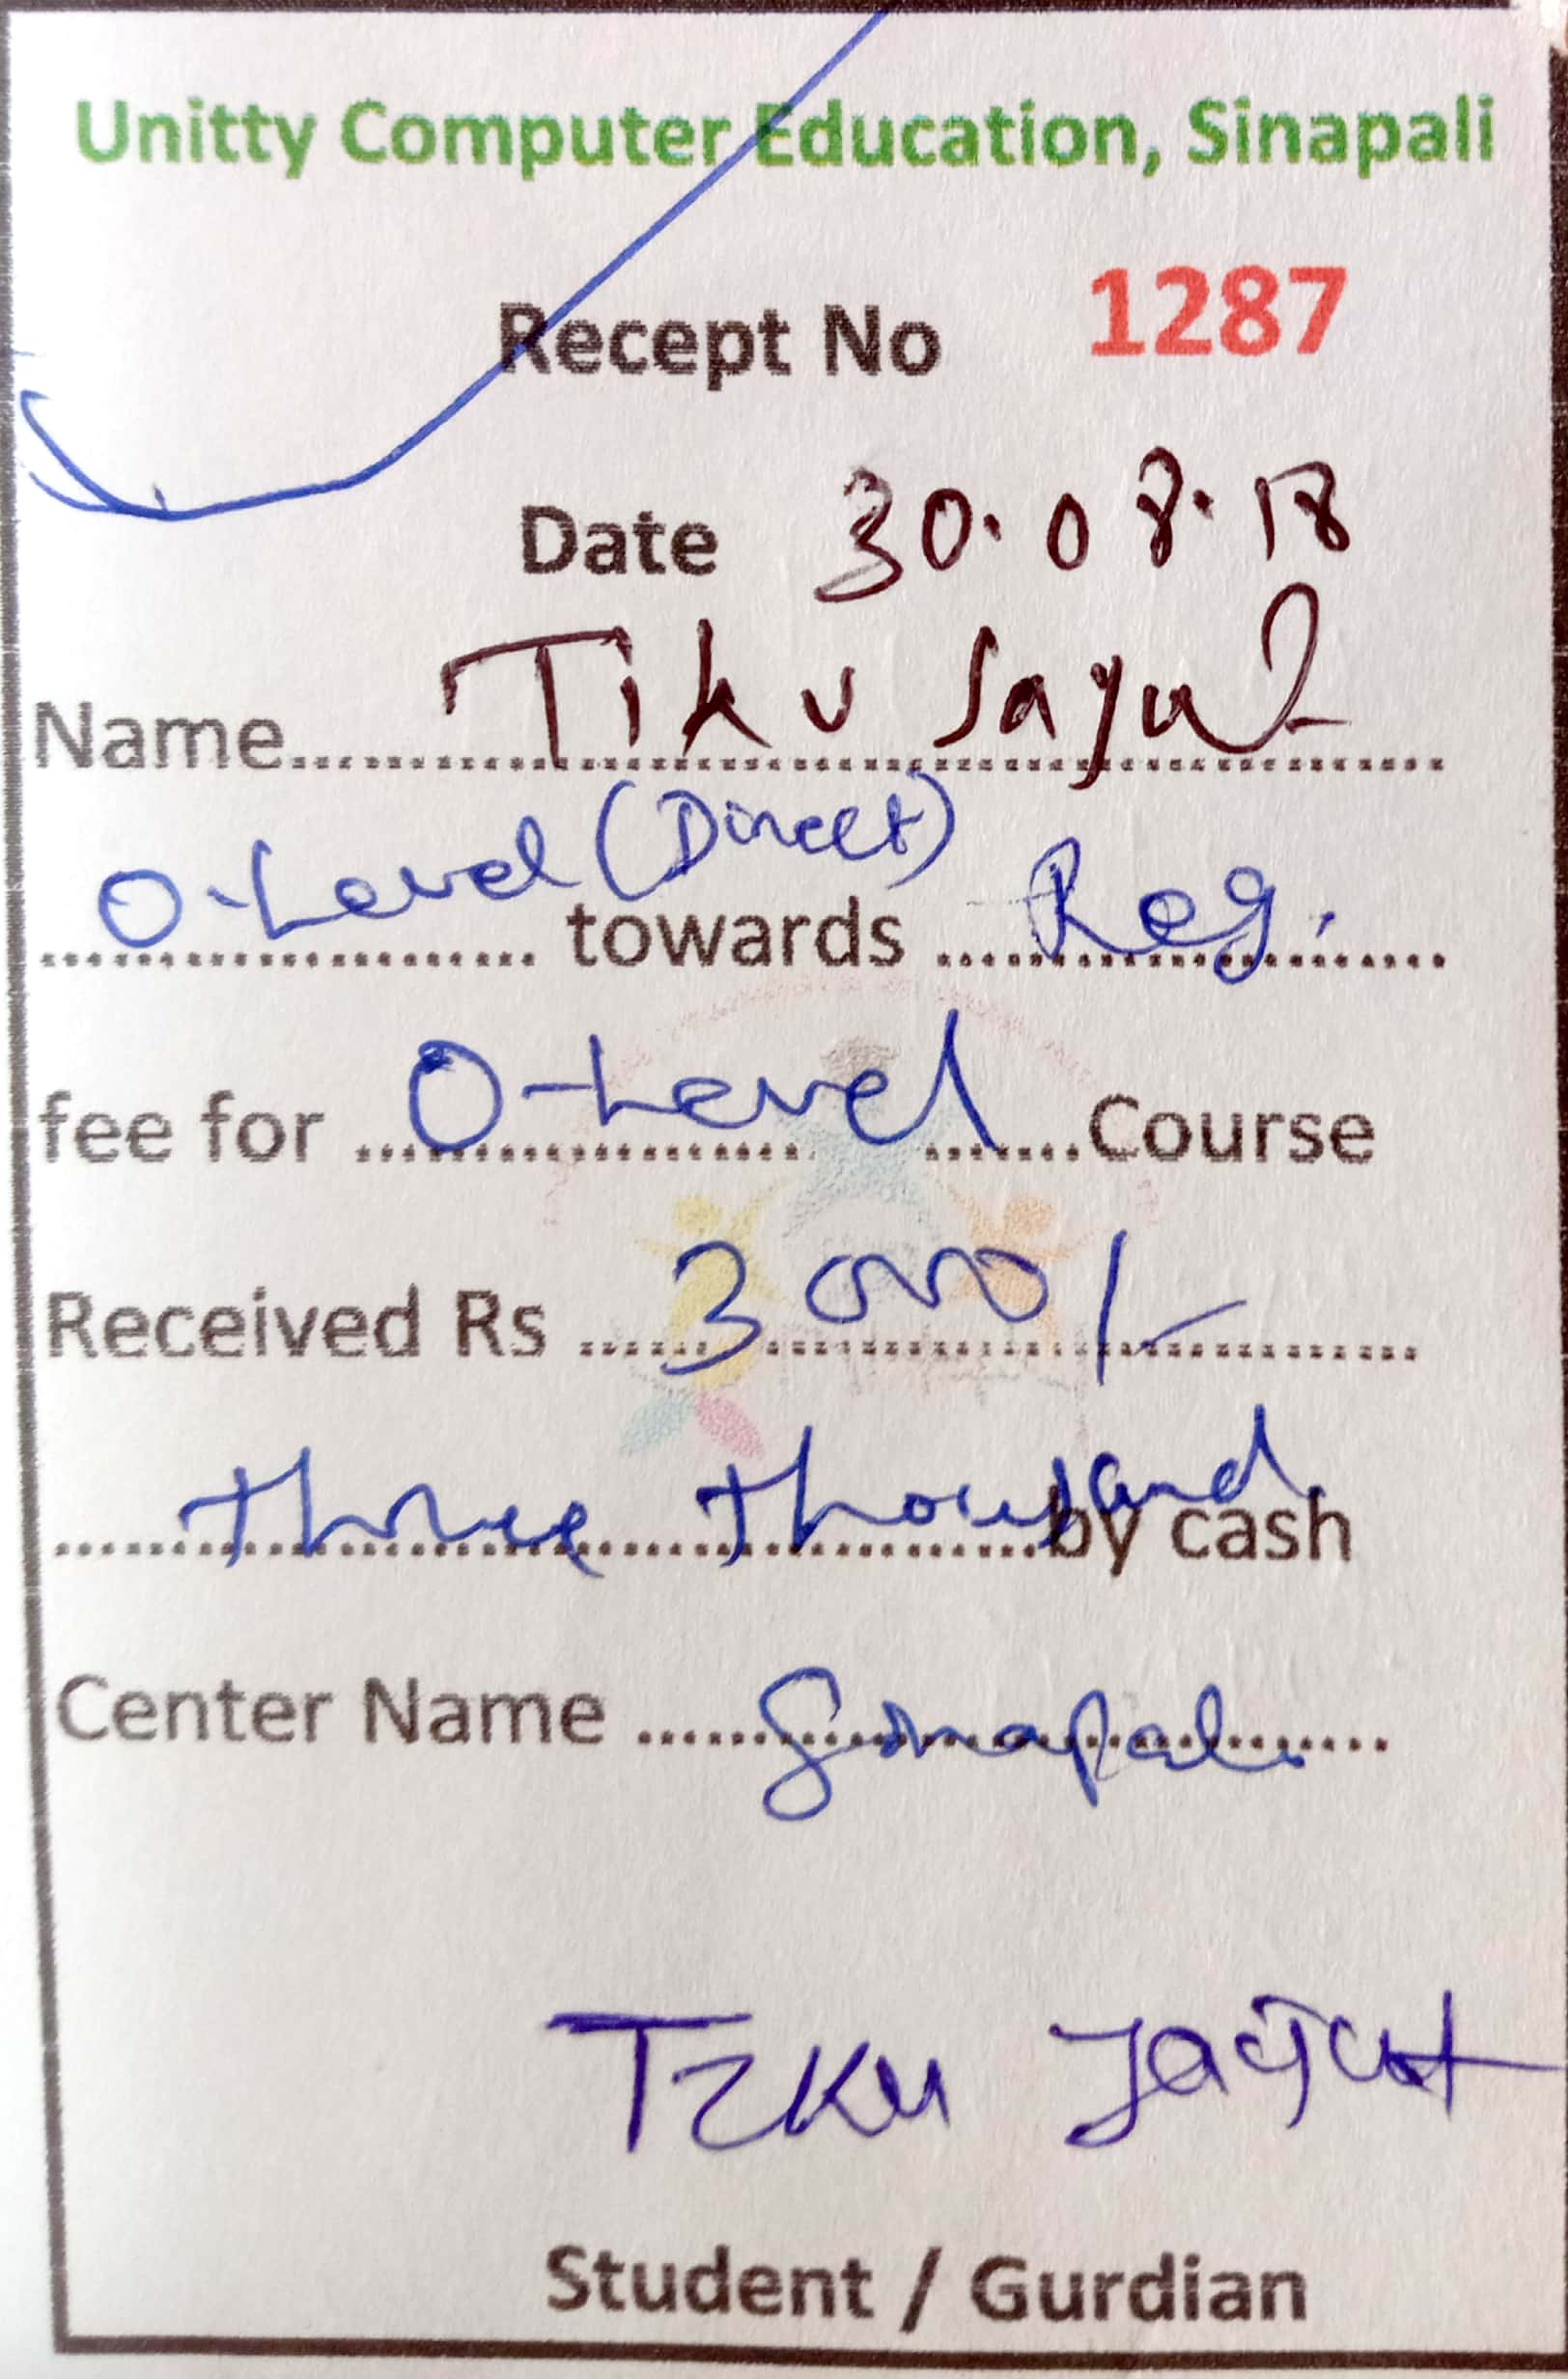 Unitty Computer Education, Sinapali
Recept No 1287
Date 30.08.18
Name Tiku
O-Level (Direct) towards Reg.
fee for O-Level Course
Received Rs 3000/-
three thousand by cash
Center Name Sinapali
Student / Gurdian